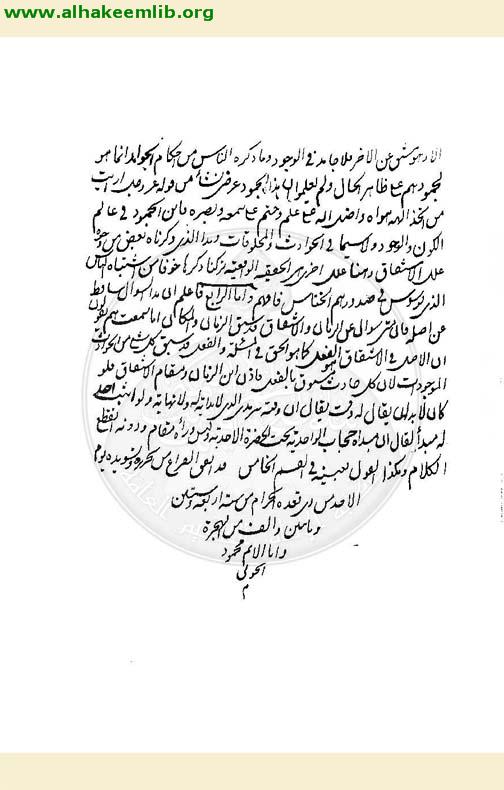 www.alhakeemlib.org
الا وهو مشتق عن الاخر فلا جامد في الوجود وما ذكره الناس من احكام الجوامد انما هو
لجمودهم على ظاهر الحال ولم يعلموا ان هذا الجمود عرضي من قوله عز وجل ارايت
من اتخذ الهه هواه واضله الله على علم وختم على سمعه وبصره فاين الجمود في عالم
الكون والوجود ولا سيما في الحوادث والمخلوقات وهذا الذي ذكرناه بعض من وجوه
على الاشتقاق وهنا على اخر هي الحقيقة الواقعية تركنا ذكرها خوفا من اشتباه الناس
الذي يوسوس في صدورهم الخناس فافهم واما الرابع فاعلم ان هذا السؤال ساقط
عن اصله فانه سؤال عن الزمان والاشتقاق فسبق الزمان والمكان اما سمعت هم يقولون
ان الاصل في الاشتقاق الفعل كما هو الحق في المسئلة والفعل قد سبق كل شئ من الحوادث
الموجودات لان كل حادث مسبوق بالفعل فاذن اين الزمان ومقام الاشتقاق فلو
كان لا بد ان يقال له وقت يقال ان وقته سرمد الذي لا بداية له ولا نهاية له ولو اثبت احد
له مبدأ لقال ان مبداه حجاب الواحدية تحت الحضرة الاحدية وليس وراء مقام ودونه انقطع
الكلام وهكذا القول بعينه في القسم الخامس قد يقع الفراغ من تحريره وتسويده يوم
الاحد من ذي قعدة الحرام من سنة اربعة وستين
ومائتين والف من الهجرة
وانا الاثم محمود
الخوئي
م